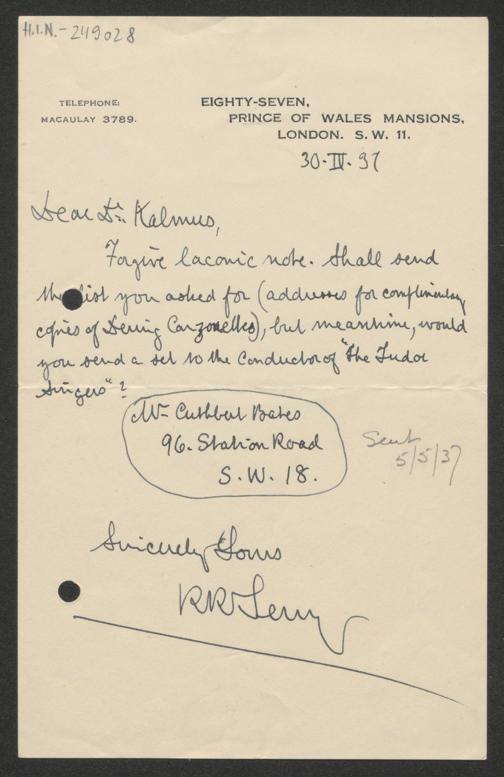 H.I.N.- 249028
TELEPHONE:
MACAULAY 3789.
EIGHTY-SEVEN,
PRINCE OF WALES MANSIONS,
LONDON. S.W. 11.
30·IV·37
Dear Dr. Kalmus,
Forgive laconic note. Shall send
the list you asked for (addresses for complimentary
copies of Dering Canzonettes), but meantime, would
you send a set to the Conductor of "The Tudor
Singers"?
Mr Cuthbert Bates
96. Station Road
S.W. 18.
Sent
5/5/37
Sincerely Yours
RRTerry